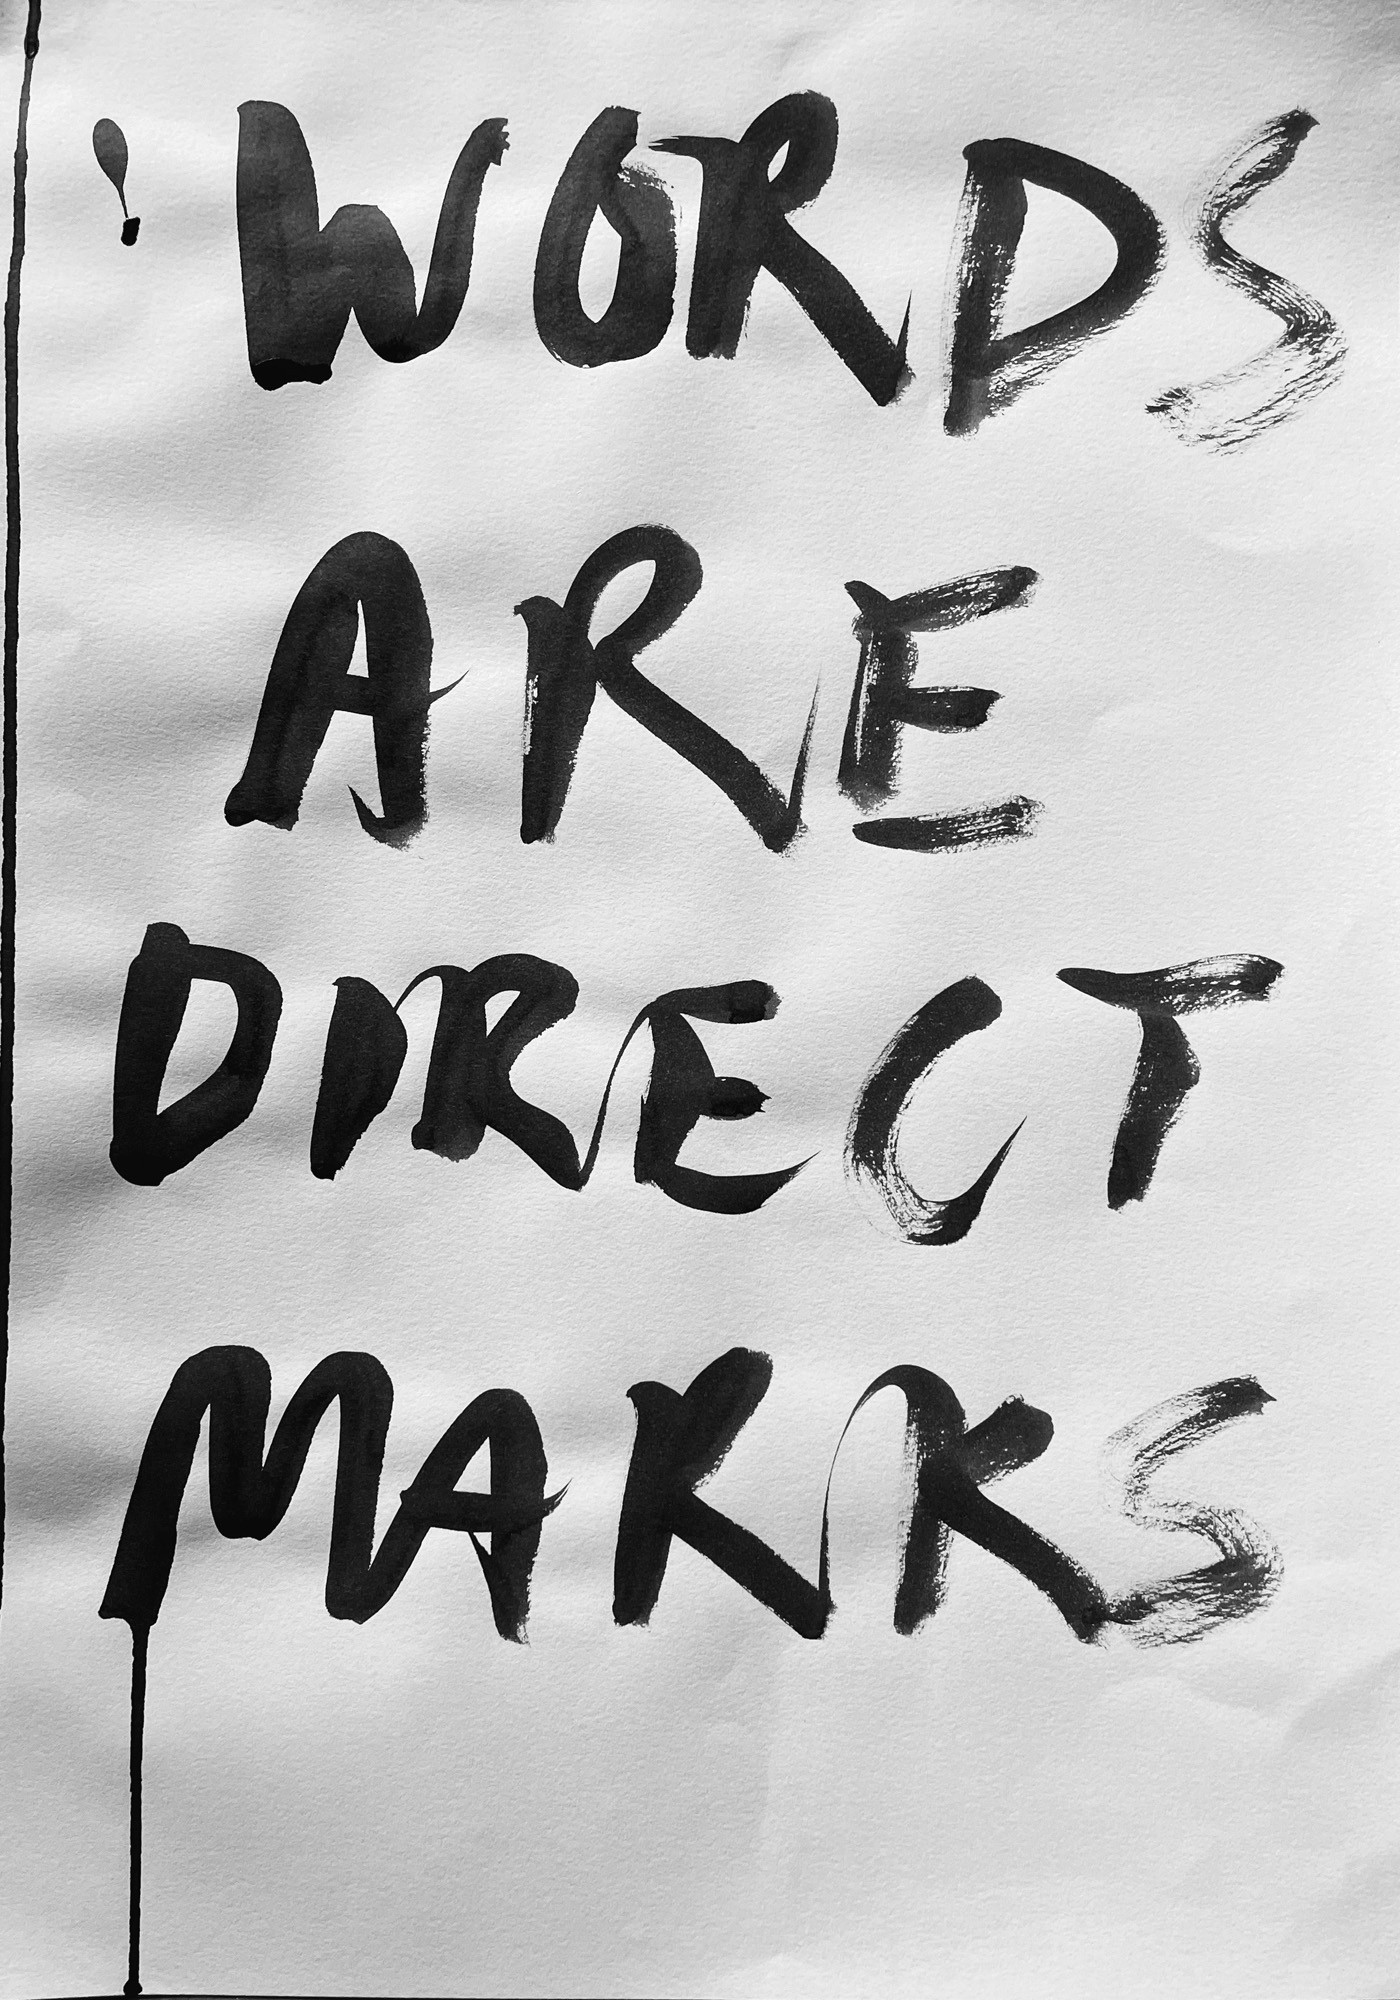 WORDS
ARE
DIRECT
MARKS